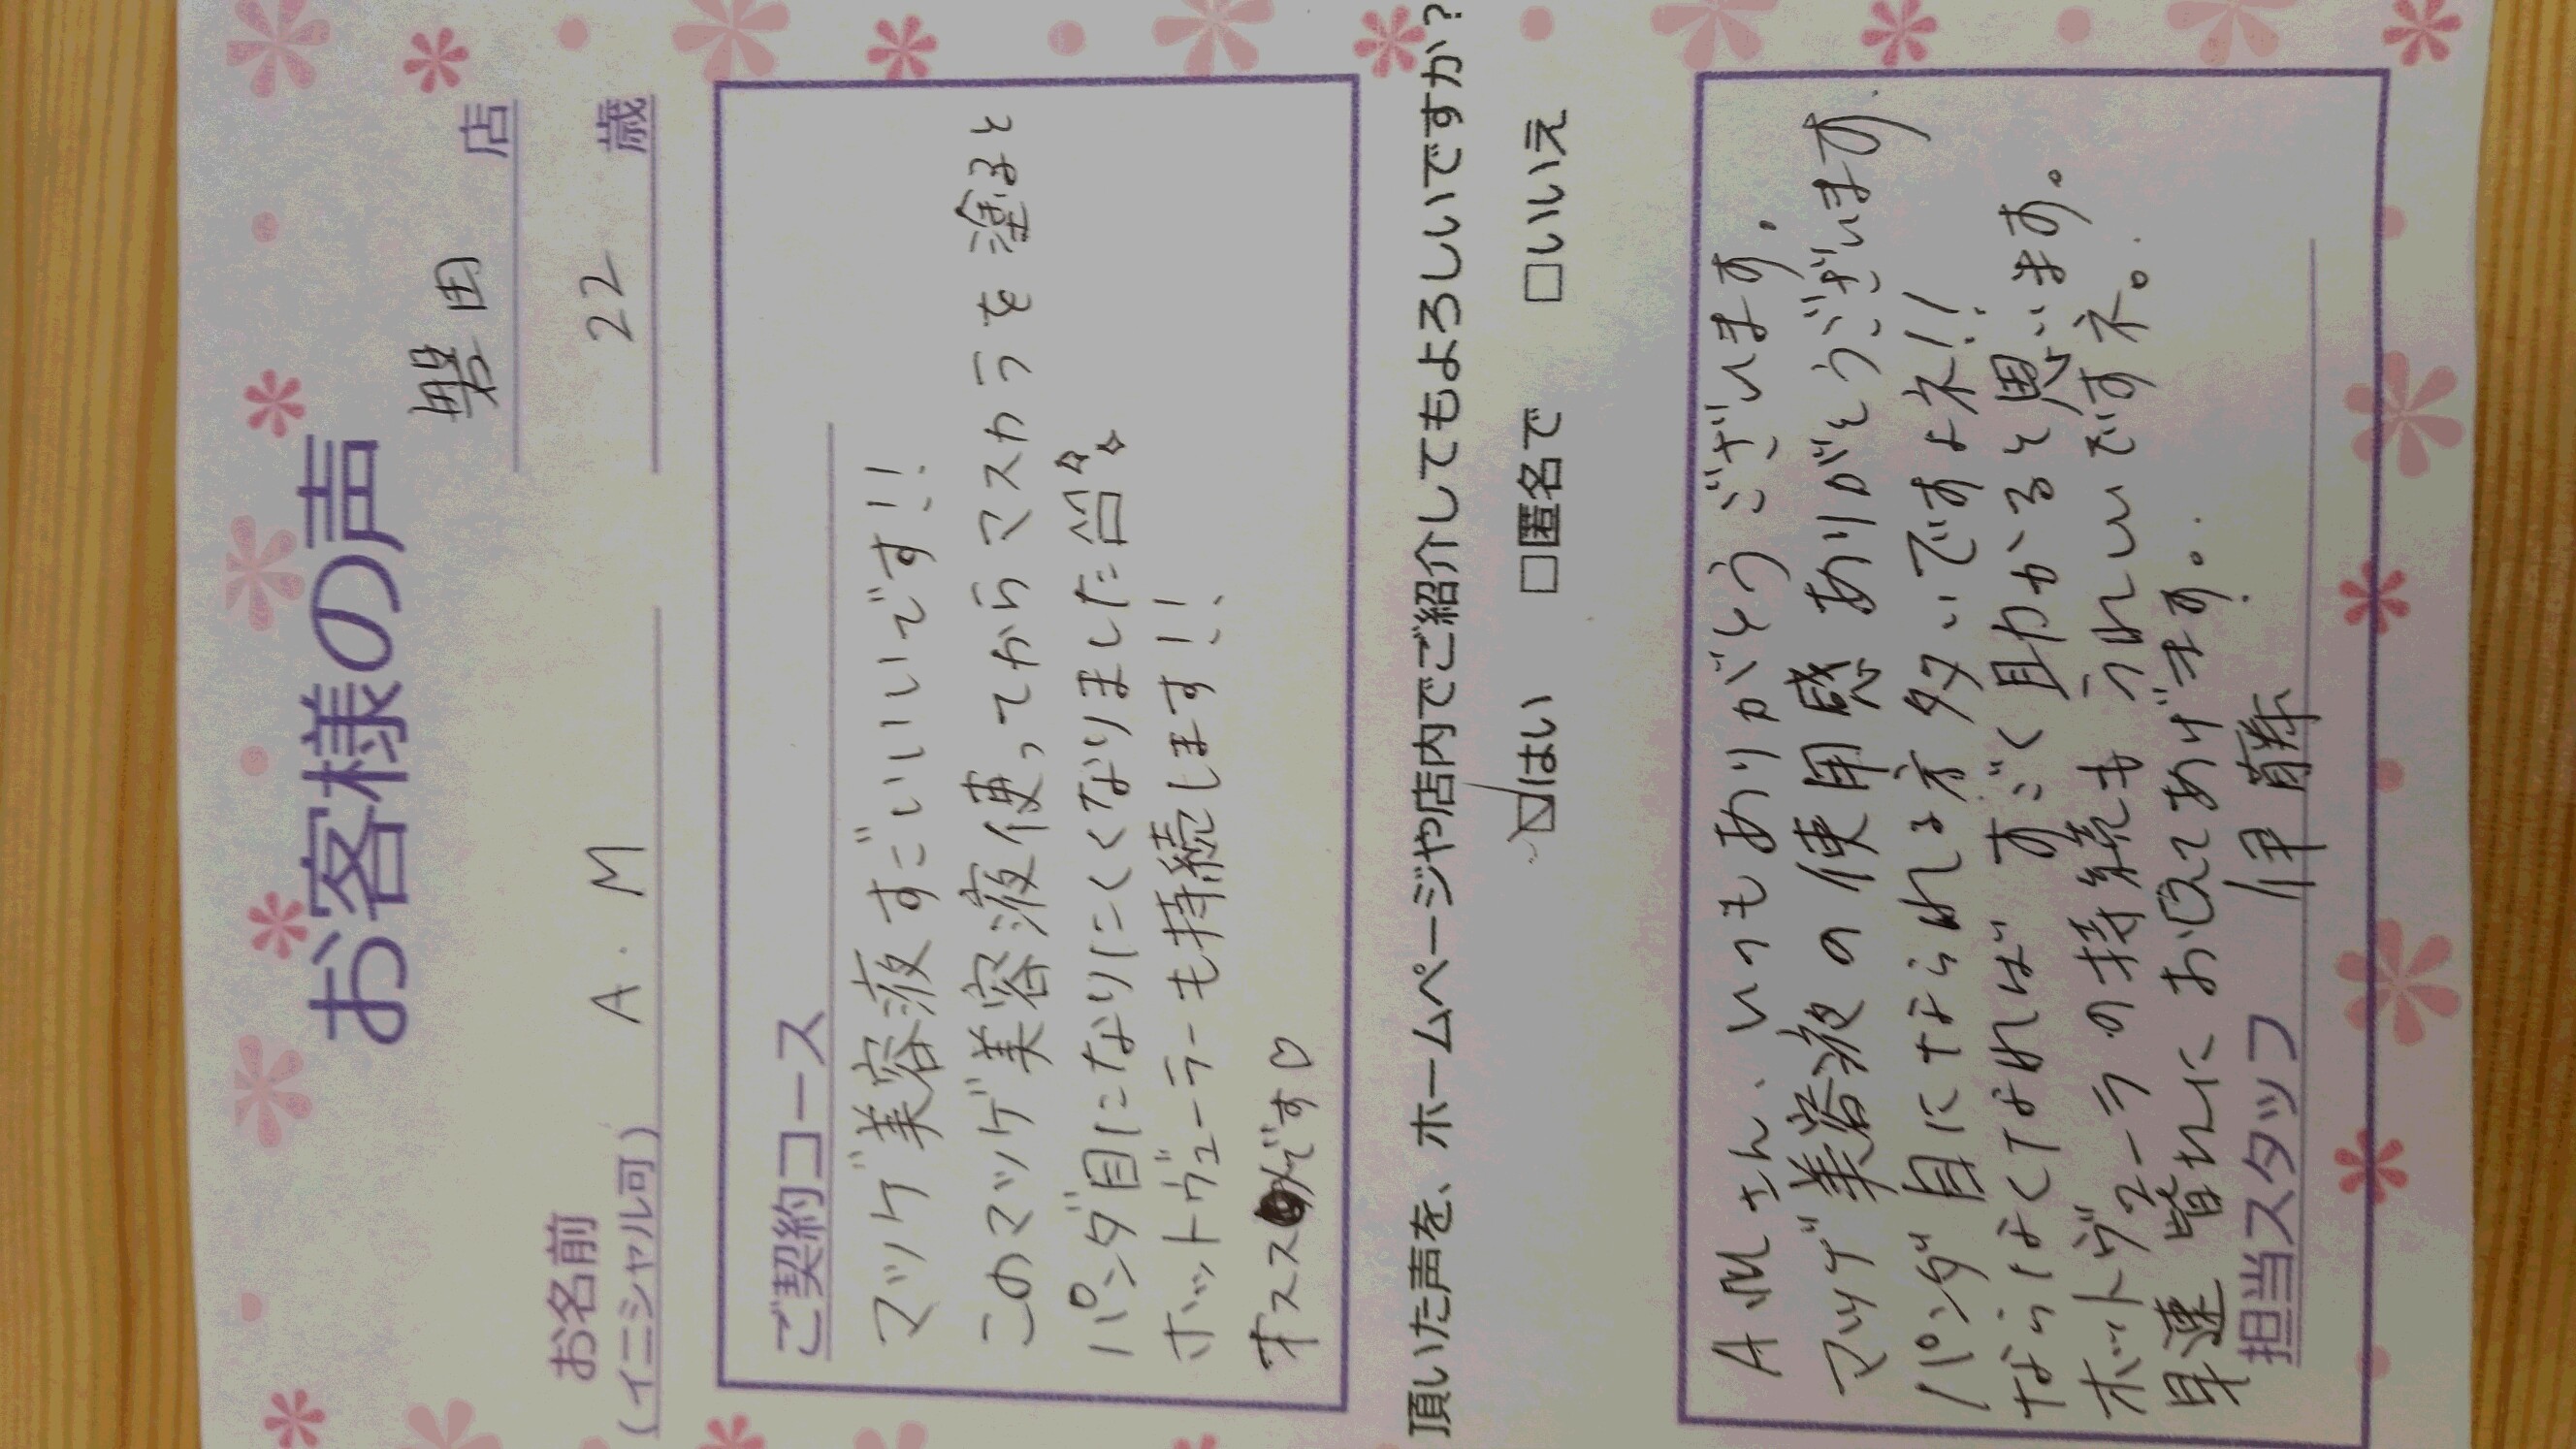 お客様の声
磐田 店
お名前
(イニシャル可) A.M 22 歳
ご契約コース
マツゲ美容液すごいいいです!!
このマツゲ美容液使ってからマスカラを塗ると
パンダ目になりにくくなりました
ホットヴューラーも持続します!!
オススメです♡
頂いた声を、ホームページや店内でご紹介してもよろしいですか?
☑はい □匿名で □いいえ
AMさん、いつもありがとうございます。
マツゲ美容液の使用感ありがとうございます
パンダ目になられる方多いですよネ!!
ならなくなれば すごく助かると思います。
ホットヴューラの持続もうれしいですネ。
早速 皆れに お伝えてあげます。
担当スタッフ 伊藤